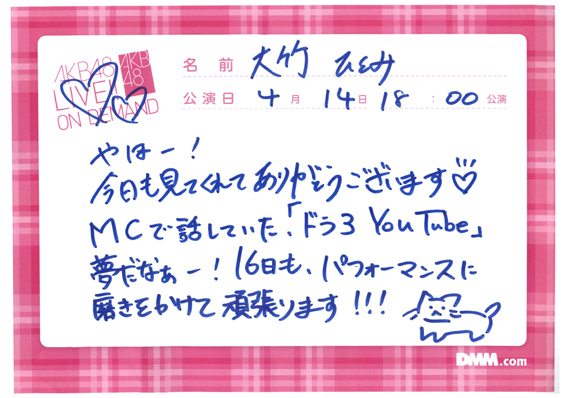 AKB48
LIVE!!
ON DEMAND
AKB
48
名前 大竹 ひとみ
公演日 4月14日18:00公演
やほー!
今日も見てくれてありがとうございます♡
MCで話していた「ドラ3 YouTube」
夢だなぁー!16日も、パフォーマンスに
磨きをかけて頑張ります!!!
DMM.com